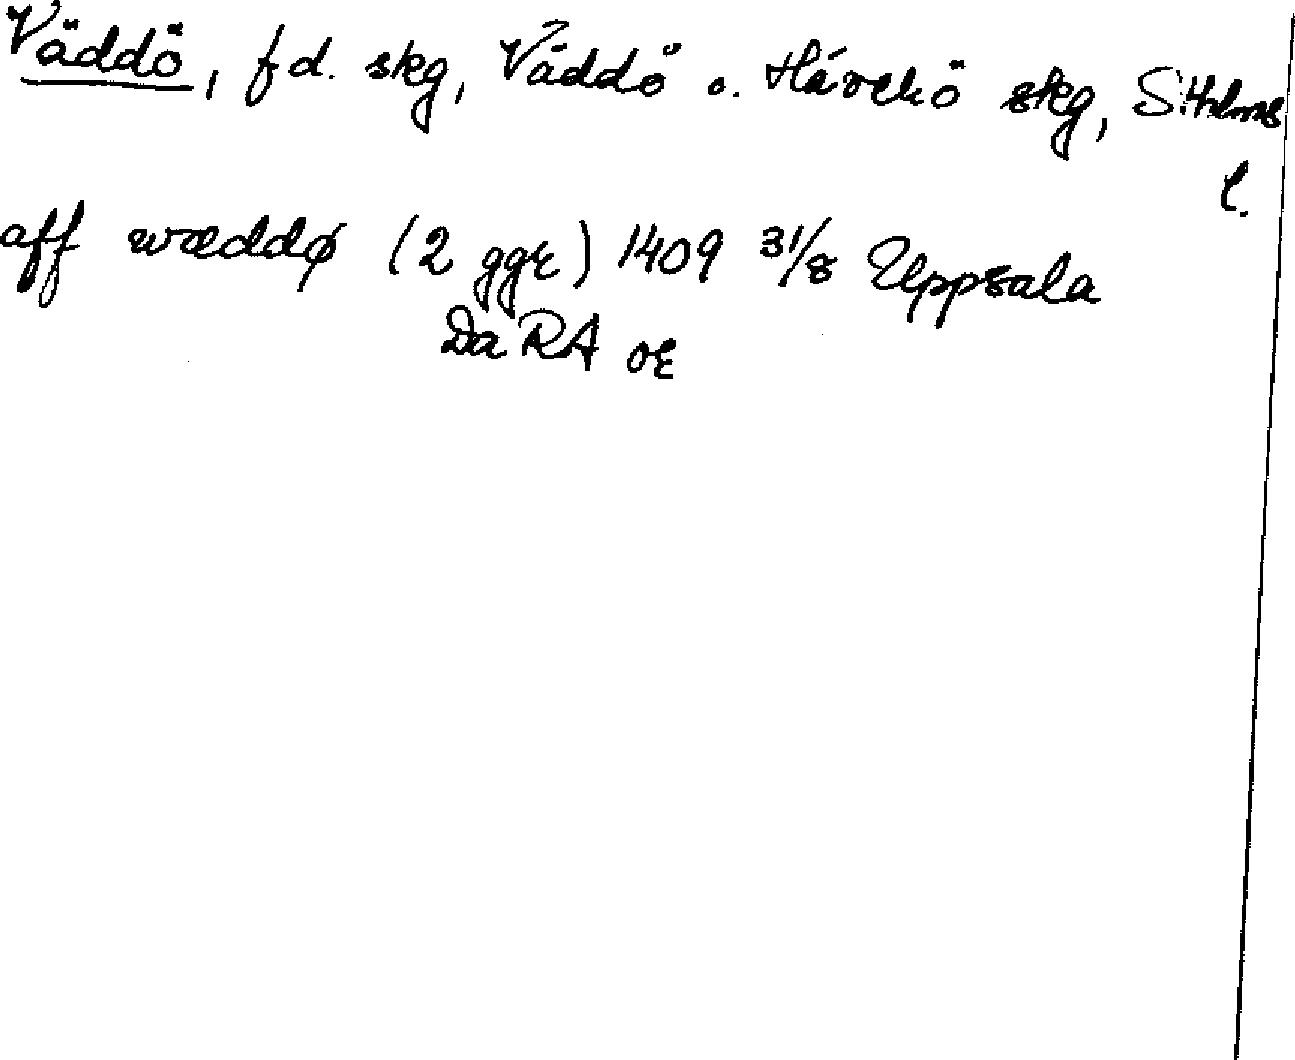 Väddö, fd. skg, Väddö o. Häverö skg, Sthlms
l.
aff wæddø (2 ggr) 1409 31/8 Uppsala
Da RA or